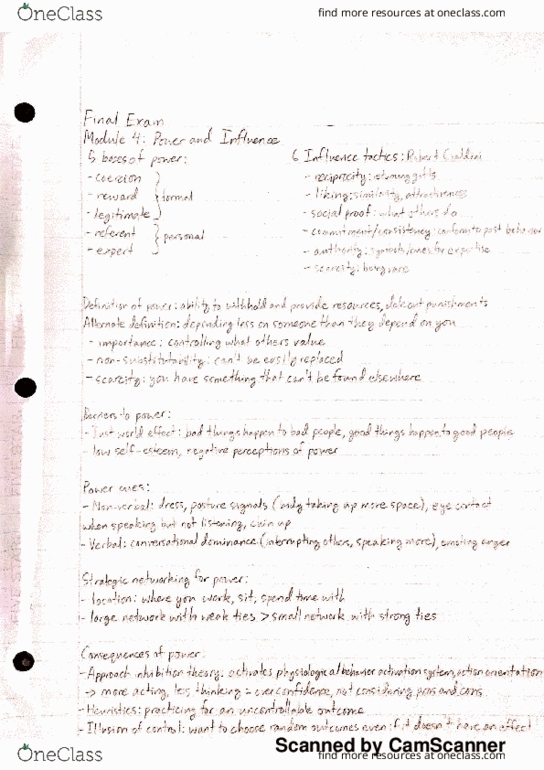 OneClass
find more resources at oneclass.com
Final Exam
Module 4: Power and Influence
5 bases of power:
- coercion
- reward
- legitimate
formal
- referent
- expert
personal
6 Influence tactics: Robert Cialdini
- reciprocity: returning gifts
- liking: similarity, attractiveness
- social proof: what others do
- commitment/consistency: conform to past behavior
- authority: symbols/cues for expertise
- scarcity: being rare
Definition of power: ability to withhold and provide resources, dole out punishments
Alternate definition: depending less on someone than they depend on you
- importance: controlling what others value
- non-substitutability: can't be easily replaced
- scarcity: you have something that can't be found elsewhere
Barriers to power:
- Just world effect: bad things happen to bad people, good things happen to good people
- low self-esteem, negative perceptions of power
Power cues:
- Nonverbal: dress, posture signals (body taking up more space), eye contact
when speaking but not listening, chin up
- Verbal: conversational dominance (interrupting others, speaking more), emoting anger
Strategic networking for power:
- location: where you work, sit, spend time with
- large network with weak ties > small network with strong ties
Consequences of power:
- Approach inhibition theory: activates physiological behavior activation system, action orientation
-> more acting, less thinking = overconfidence, not considering pros and cons
- Heuristics: practicing for an uncontrollable outcome
- Illusion of control: want to choose random outcomes even if it doesn't have an effect
Scanned by CamScanner
OneClass
find more resources at oneclass.com